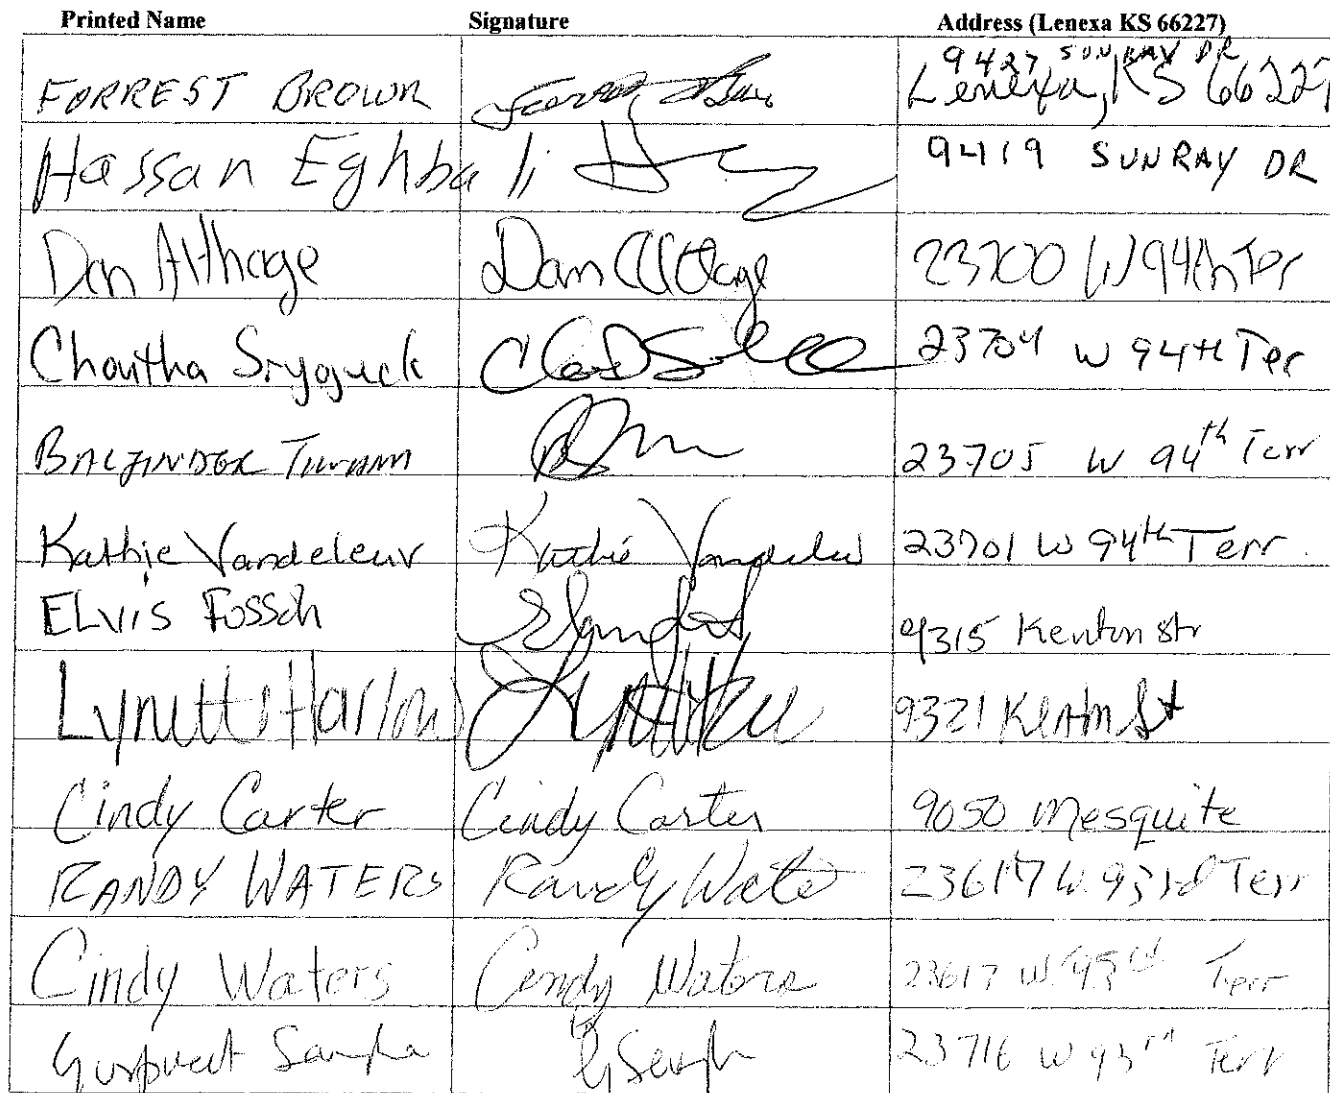 Printed Name Signature Address (Lenexa KS 66227)
9427 SUNRAY DR
FORREST BROWN Lenexa, KS 66227
Hassan Eghbali 9419 SUNRAY DR
Dan Althage Dan Althage 23700 W 94th Ter
Choutha 23704 W 94th Ter
23705 W 94th Terr
Kathie Vandeleur Kathie Vandeleur 23701 W 94th Terr.
ELVIS FOSSOh 9315 Kenton str
Lynett Harlow 9321 Kenton St
Cindy Carter Cindy Carter 9050 Mesquite
RANDY WATERS Randy Wate 23617 W. 93rd Terr
Cindy Waters Cindy Waters 23617 W 93rd Terr
Gurpreet Sangha 23716 W 93rd Terr